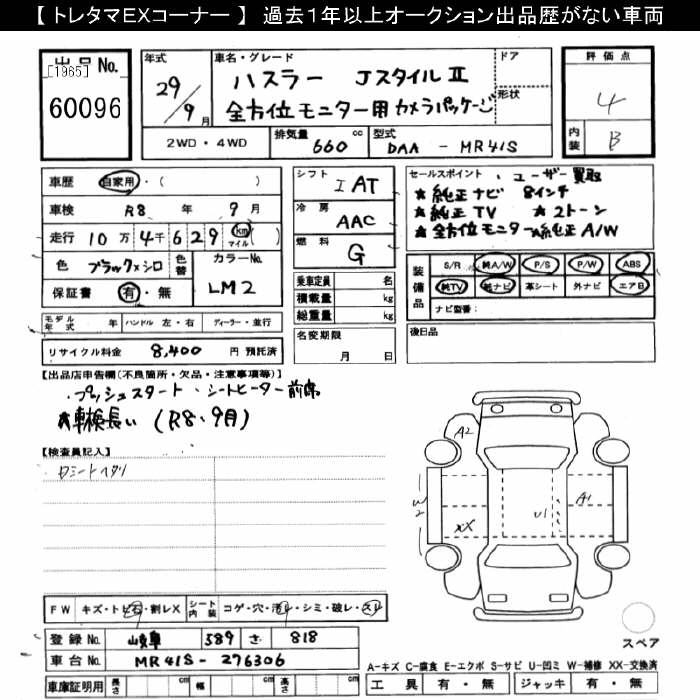 【 トレタマEXコーナー 】 過去1年以上オークション出品歴がない車両
出品No.
[1965]
60096
年式
29/9月
車名・グレード
ハスラー Jスタイル II
全方位モニター用カメラパッケージ
ドア
形状
2WD・4WD
排気量 660 cc
型式 DAA - MR41S
評価点
4
内装 B
車歴 自家用・( )
車検 R8 年 9月
走行 10万4千629 km マイル ( )
色 ブラック×シロ 色替
カラーNo.
LM2
保証書 有・無
モデル年式 年 ハンドル 左・右 ディーラー・並行
リサイクル料金 8,400 円 預託済
シフト I AT
冷房 AAC
燃料 G
乗車定員 名
積載量 kg
総重量 kg
名変期限
月 日
セールスポイント ・ユーザー買取
★純正ナビ 8インチ
★純正TV ★2トーン
★全方位モニター ★純正A/W
装備品
S/R 純A/W P/S P/W ABS
純TV 純ナビ 革シート 外ナビ エアB
ナビ型番:
後日品
【出品店申告欄(不良箇所・欠品・注意事項等)】
・プッシュスタート・シートヒーター前席
★車検長い (R8・9月)
【検査員記入】
A2
W2
XX
U1
A1
FW キズ・トビ石・割レX シート内装 コゲ・穴・汚レ・シミ・破レ・スレ
スペア
登録No. 岐阜 589 さ 818
車台No. MR41S- 276306
車庫証明用 長さ cm 幅 cm 高さ cm
A-キズ C-腐食 E-エクボ S-サビ U-凹ミ W-補修 XX-交換済
工具 有・無 ジャッキ 有・無